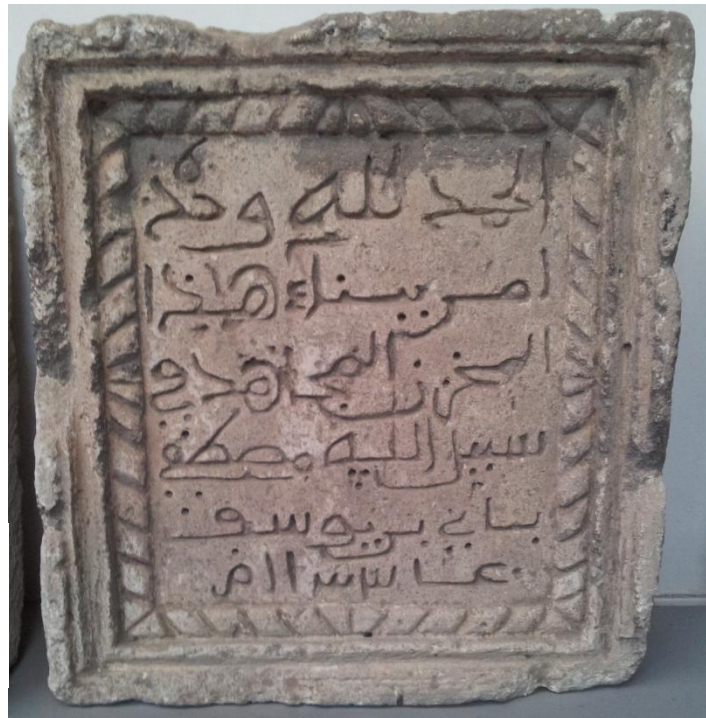 الحمد لله وحده
امر ببناء هذا
المخزن المجاهد في
سبيل الله مصطفى
باي بن يوسف